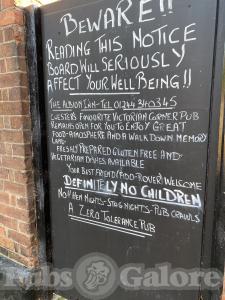 BEWARE!!
READING THIS NOTICE
BOARD WILL SERIOUSLY
AFFECT YOUR WELL BEING!!
THE ALBION INN - TEL 01244 340345
CHESTERS FAVOURITE VICTORIAN CORNER PUB
REMAINS OPEN FOR YOU TO ENJOY GREAT
FOOD-ATMOSPHERE AND A WALK DOWN MEMORY
LANE-
FRESHLY PREPARED GLUTEN FREE AND-
VEGETARIAN DISHES AVAILABLE
YOUR BEST FRIEND (FOOD-ROVER) WELCOME
DEFINITELY NO CHILDREN
NO!! HEN NIGHTS-STAG NIGHTS-PUB CRAWLS
A ZERO TOLERANCE PUB
Pubs Galore